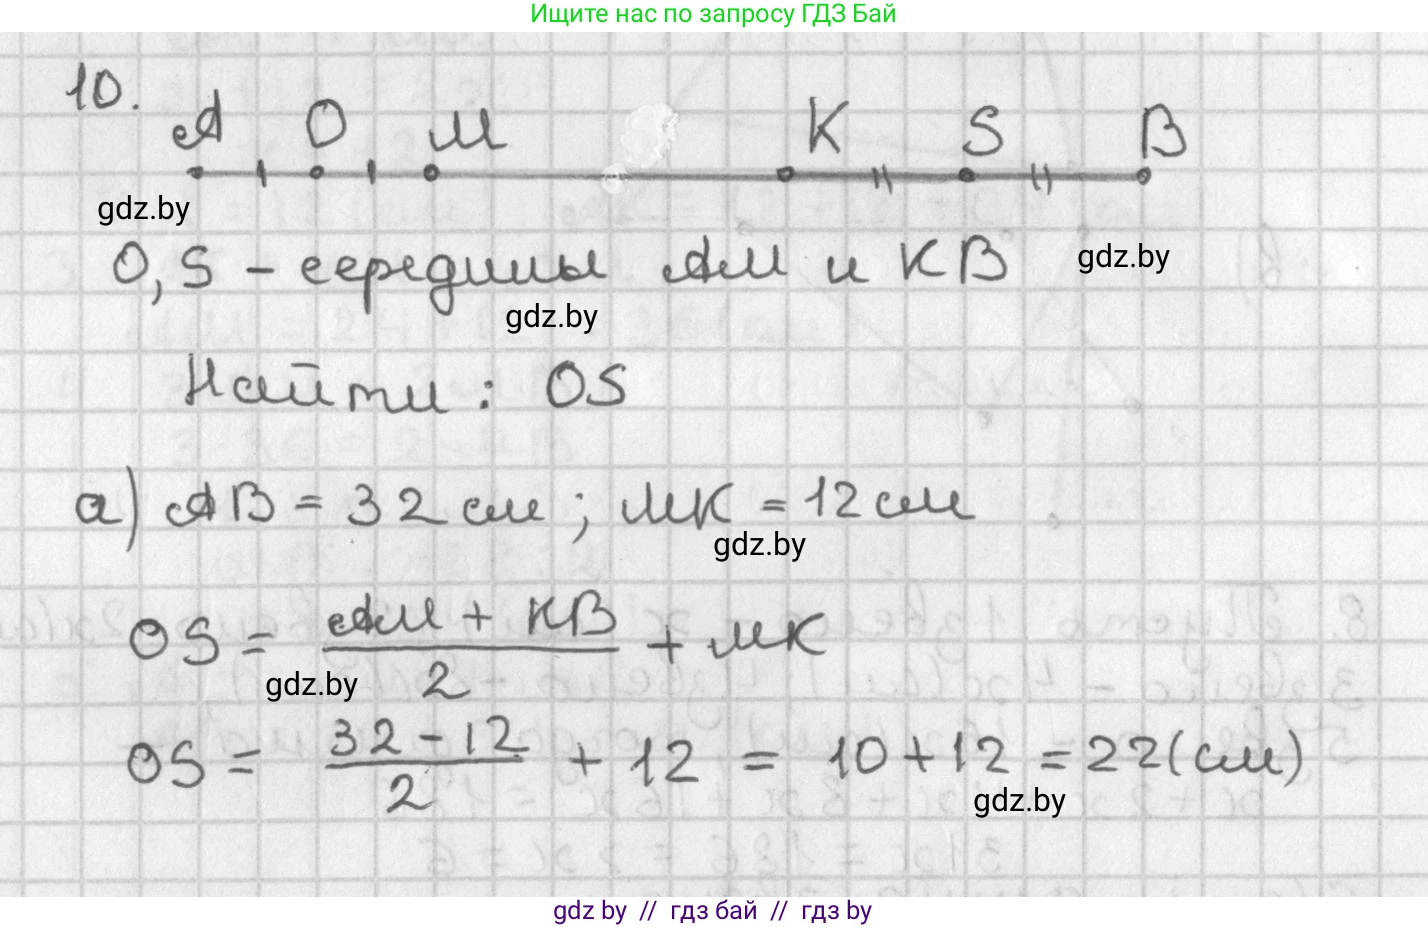 Ищите нас по запросу ГДЗ Бай
10.
А О М К S В
gdz.by
O, S - середины АМ и КВ
gdz.by
gdz.by
Найти: OS
а) АВ = 32 см; МК = 12 см
gdz.by
OS = (АМ + КВ)/2 + МК
gdz.by
OS = (32 - 12)/2 + 12 = 10 + 12 = 22 (см)
gdz.by
gdz by // гдз бай // гдз by